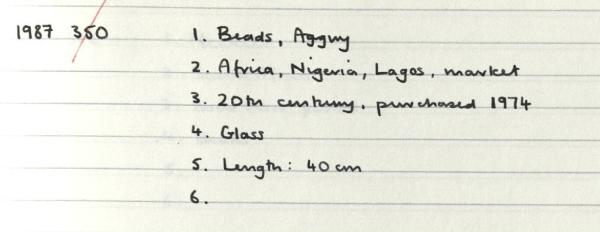 1987 350 1. Beads, Aggry
2. Africa, Nigeria, Lagos, market
3. 20th century, purchased 1974
4. Glass
5. Length: 40 cm
6.